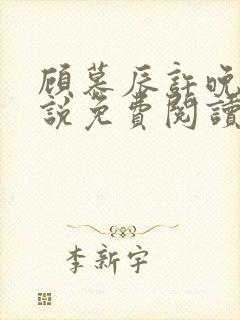 顾慕辰許晚
說免費閱讀
李新宇